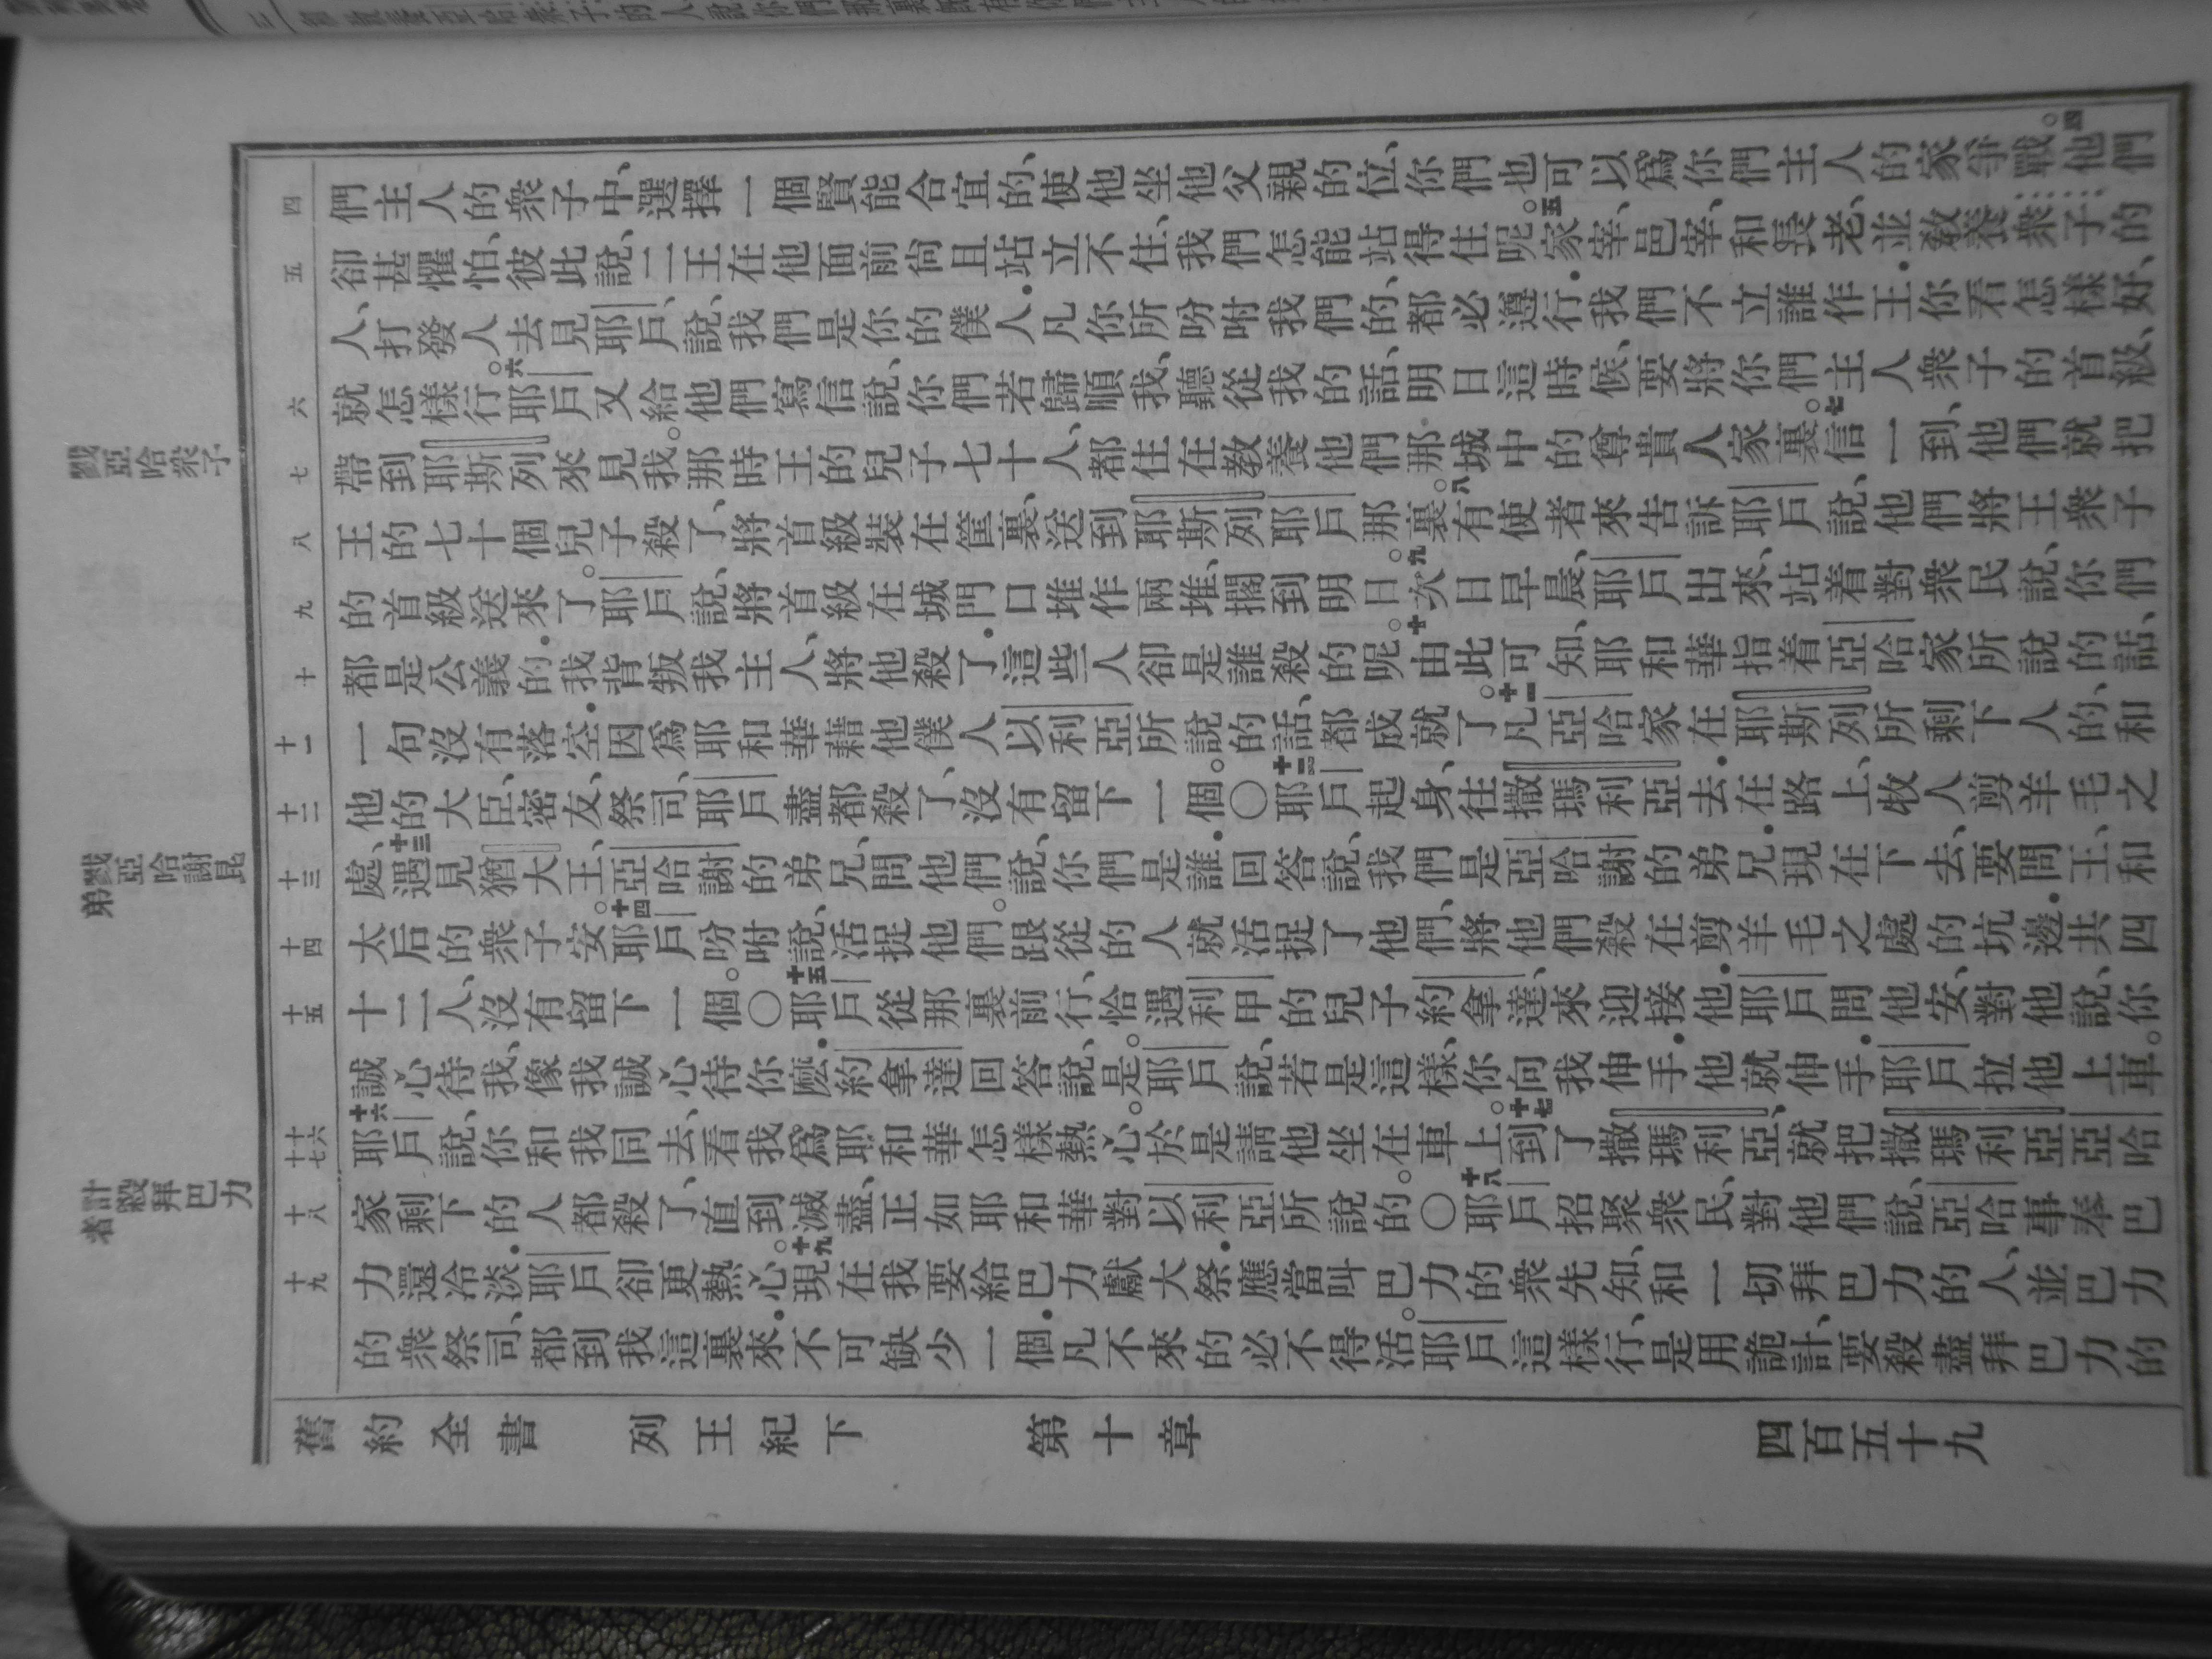 戮亞哈衆子
戮亞哈謝昆弟
計殺拜巴力者
四
五
六
七
八
九
十
十一
十二
十三
十四
十五
十六
十七
十八
十九
們主人的衆子中、選擇一個賢能合宜的、使他坐他父親的位、你們也可以爲你們主人的家爭戰。四他們
卻甚懼怕、彼此說、二王在他面前尙且站立不住、我們怎能站得住呢。五家宰、邑宰、和長老、並敎養衆子的
人、打發人去見耶戶、說、我們是你的僕人．凡你所吩咐我們的、都必遵行．我們不立誰作王．你看怎樣好、
就怎樣行。六耶戶又給他們寫信說、你們若歸順我、聽從我的話、明日這時候、要將你們主人衆子的首級、
帶到耶斯列來見我。那時王的兒子七十人、都住在敎養他們那城中的尊貴人家裏。七信一到、他們就把
王的七十個兒子殺了、將首級裝在筐裏、送到耶斯列耶戶那裏。八有使者來告訴耶戶說、他們將王衆子
的首級送來了。耶戶說、將首級在城門口堆作兩堆、擱到明日。九次日早晨、耶戶出來、站着對衆民說、你們
都是公義的．我背叛我主人、將他殺了．這些人卻是誰殺的呢。十由此可知、耶和華指着亞哈家所說的話、
一句沒有落空．因爲耶和華藉他僕人以利亞所說的話、都成就了。十一凡亞哈家在耶斯列所剩下人的、和
他的大臣、密友、祭司、耶戶盡都殺了、沒有留下一個。〇十二耶戶起身、往撒瑪利亞去．在路上、牧人剪羊毛之
處、十三遇見猶大王、亞哈謝的弟兄、問他們說、你們是誰．回答說、我們是亞哈謝的弟兄．現在下去、要問王、和
太后的衆子安。十四耶戶吩咐說、活捉他們。跟從的人就活捉了他們、將他們殺在剪羊毛之處的坑邊．共四
十二人、沒有留下一個。〇十五耶戶從那裏前行、恰遇利甲的兒子約拿達、來迎接他．耶戶問他安、對他說、你
誠心待我、像我誠心待你麽．約拿達回答說、是。耶戶說、若是這樣、你向我伸手．他就伸手．耶戶拉他上車。
十六耶戶說、你和我同去、看我爲耶和華怎樣熱心。於是請他坐在車上。十七到了撒瑪利亞、就把撒瑪利亞亞哈
家剩下的人都殺了、直到滅盡、正如耶和華對以利亞所說的。〇十八耶戶招聚衆民、對他們說、亞哈事奉巴
力還冷淡．耶戶卻更熱心。十九現在我要給巴力獻大祭．應當叫巴力的衆先知、和一切拜巴力的人、並巴力
的衆祭司、都到我這裏來．不可缺少一個．凡不來的必不得活。耶戶這樣行、是用詭計、要殺盡拜巴力的
舊約全書　列王紀下　第十章　四百五十九